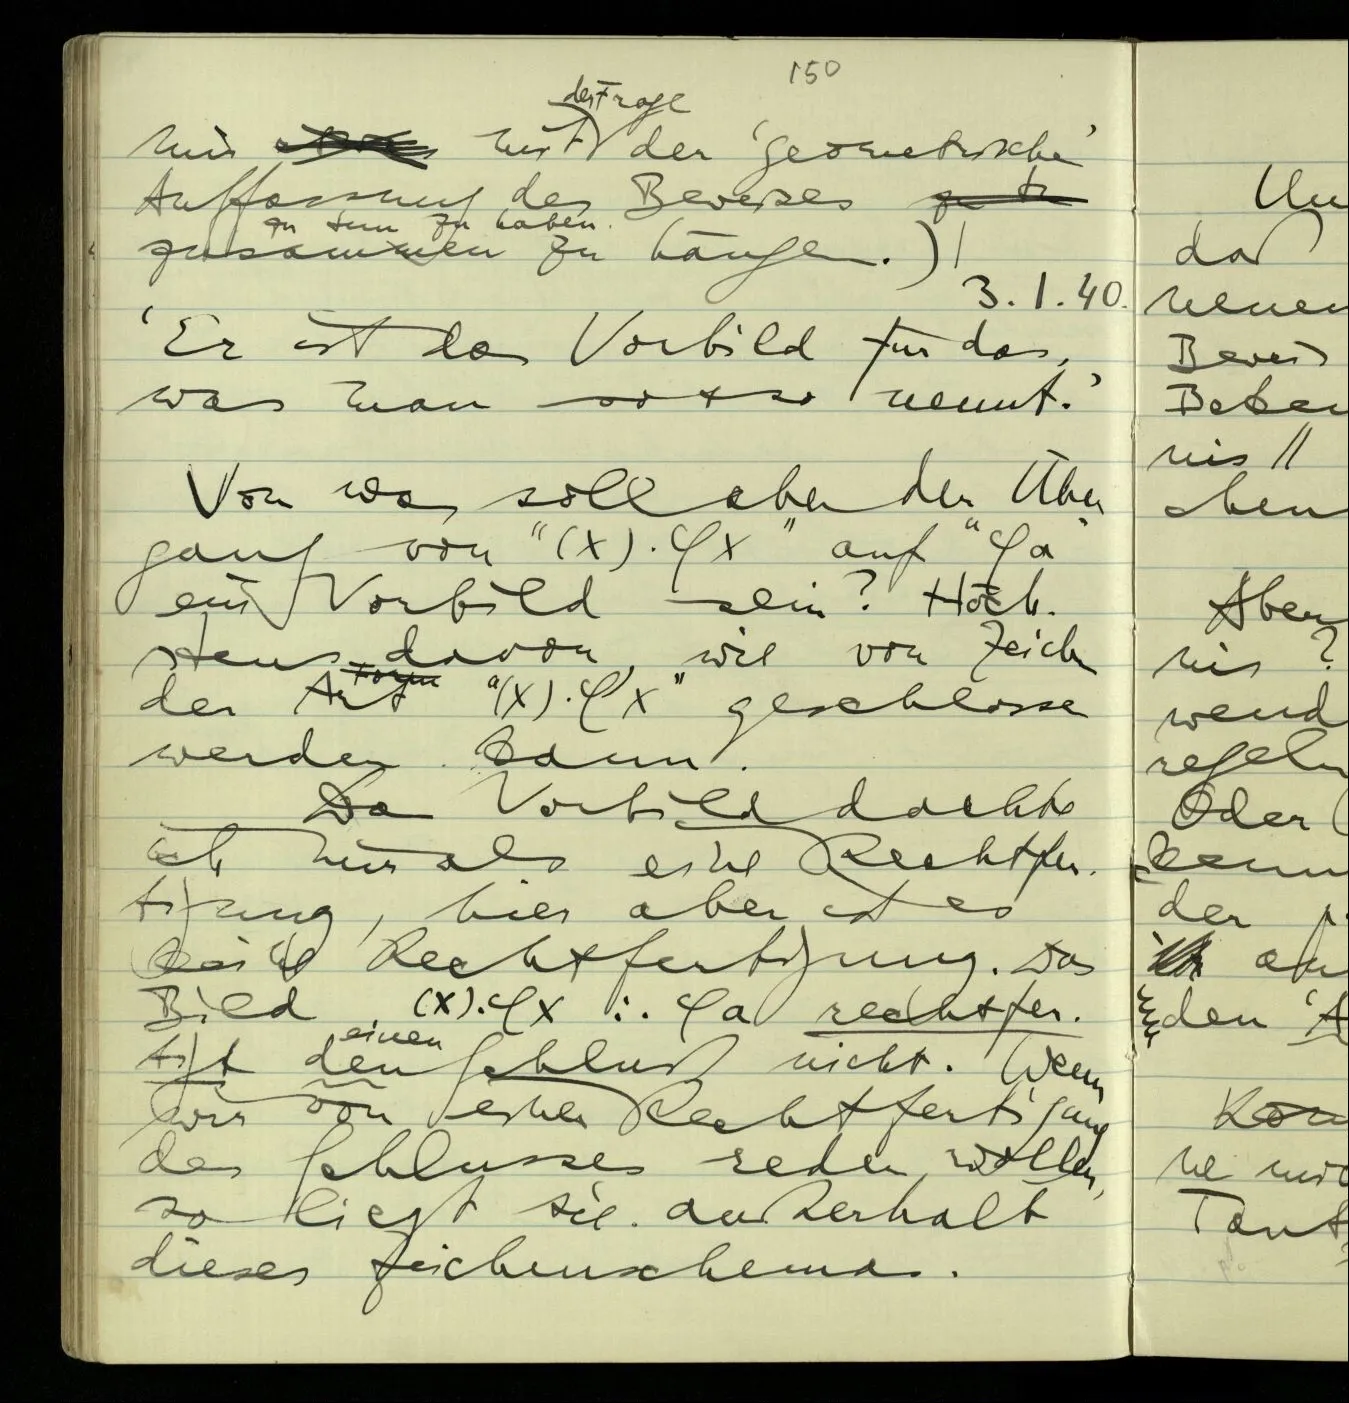 150
der Frage
mir mit der 'geometrischen'
Auffassung des Beweises
zu tun zu haben.
zusammen zu hängen.)
3.1.40.
'Er ist das Vorbild für das,
was man so & so nennt.'
Von was soll aber der Über
gang von "(x).φx" auf "φa"
ein Vorbild sein? Höch-
stens davon, wie von Zeichen
Form
der Art "(x).φx" geschlossen
werden kann.
Das Vorbild dachte
ich mir als eine Rechtfer-
tigung, hier aber ist es
keine Rechtfertigung. Das
Bild (x).φx ∴ φa rechtfer-
einen
tigt den Schluß nicht. Wenn
wir von einer Rechtfertigung
des Schlusses reden wollen,
so liegt sie außerhalb
dieses Zeichenschemas.
daß
Beweis
nis //
Aber
nis ?
Oder
der
den 'A
Tont